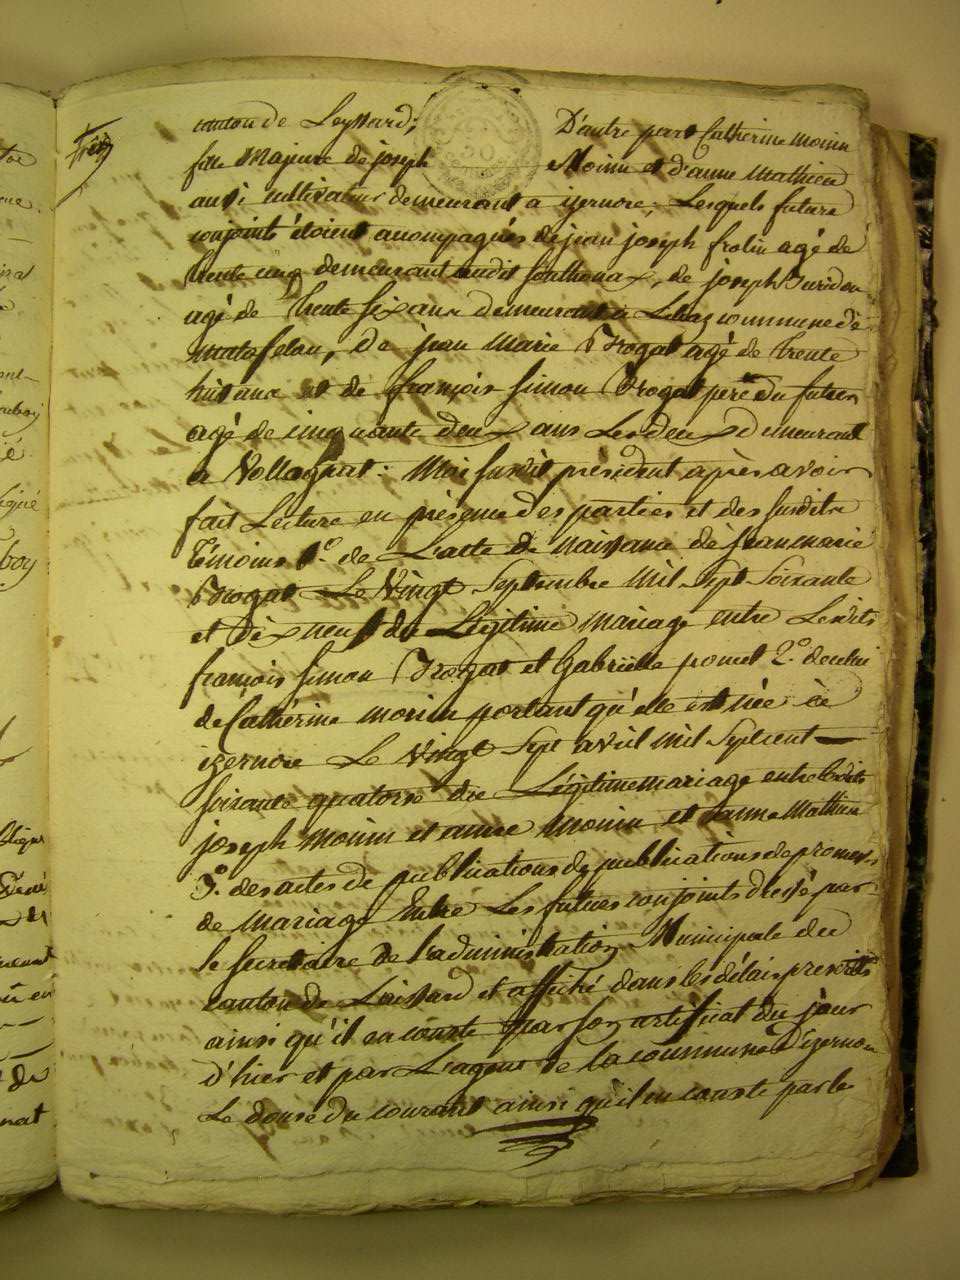 canton de Leyssard; D'autre part Catherine Moinin
fille Majeure de joseph Moinin et d'anne Mathieu
aussi cultivateur demeurant a izernore; Lesquels future
conjoints étoient acompagnés de jean joseph frolin agé de
trente cinq demeurant audit Sonthonax, de joseph
agé de trente Six ans demeurant a commune de
Matafelon, De jean Marie Brogat agé de trente
huit ans et de françois Simon Brogat père du futur
agé de cinquante deux ans Les deux demeurant
a Vollognat. Moi Susdit président après avoir
fait Lecture en présence des parties et des Susdits
Témoins 1.º de L'acte de Naissance de jean marie
Brogat Le Vingt Septembre Mil Sept Soixante
et dix neuf du Légitime Mariage entre Lesdits
françois Simon Brogat et Gabrielle poncet 2.º de celui
de Cathérine Monin portant qu'elle est née à
izernore Le Vingt Sept avril Mil Sept cent
Soixante quatorze du Légitime mariage entre lesdits
joseph Monin et anne Monin et danne Mathieu
3.º des actes de publications de publications de promesses
de Mariage Entre Les futurs conjoints dressé par
le Secretaire de l'administration Municipale du
canton de Laissard et affiché dans les délais prescrits
ainsi qu'il en conste par son certificat du jour
d'hier et par L'agent de la commune D'izernore
Le douze du courant ainsi qu'il en conste par le